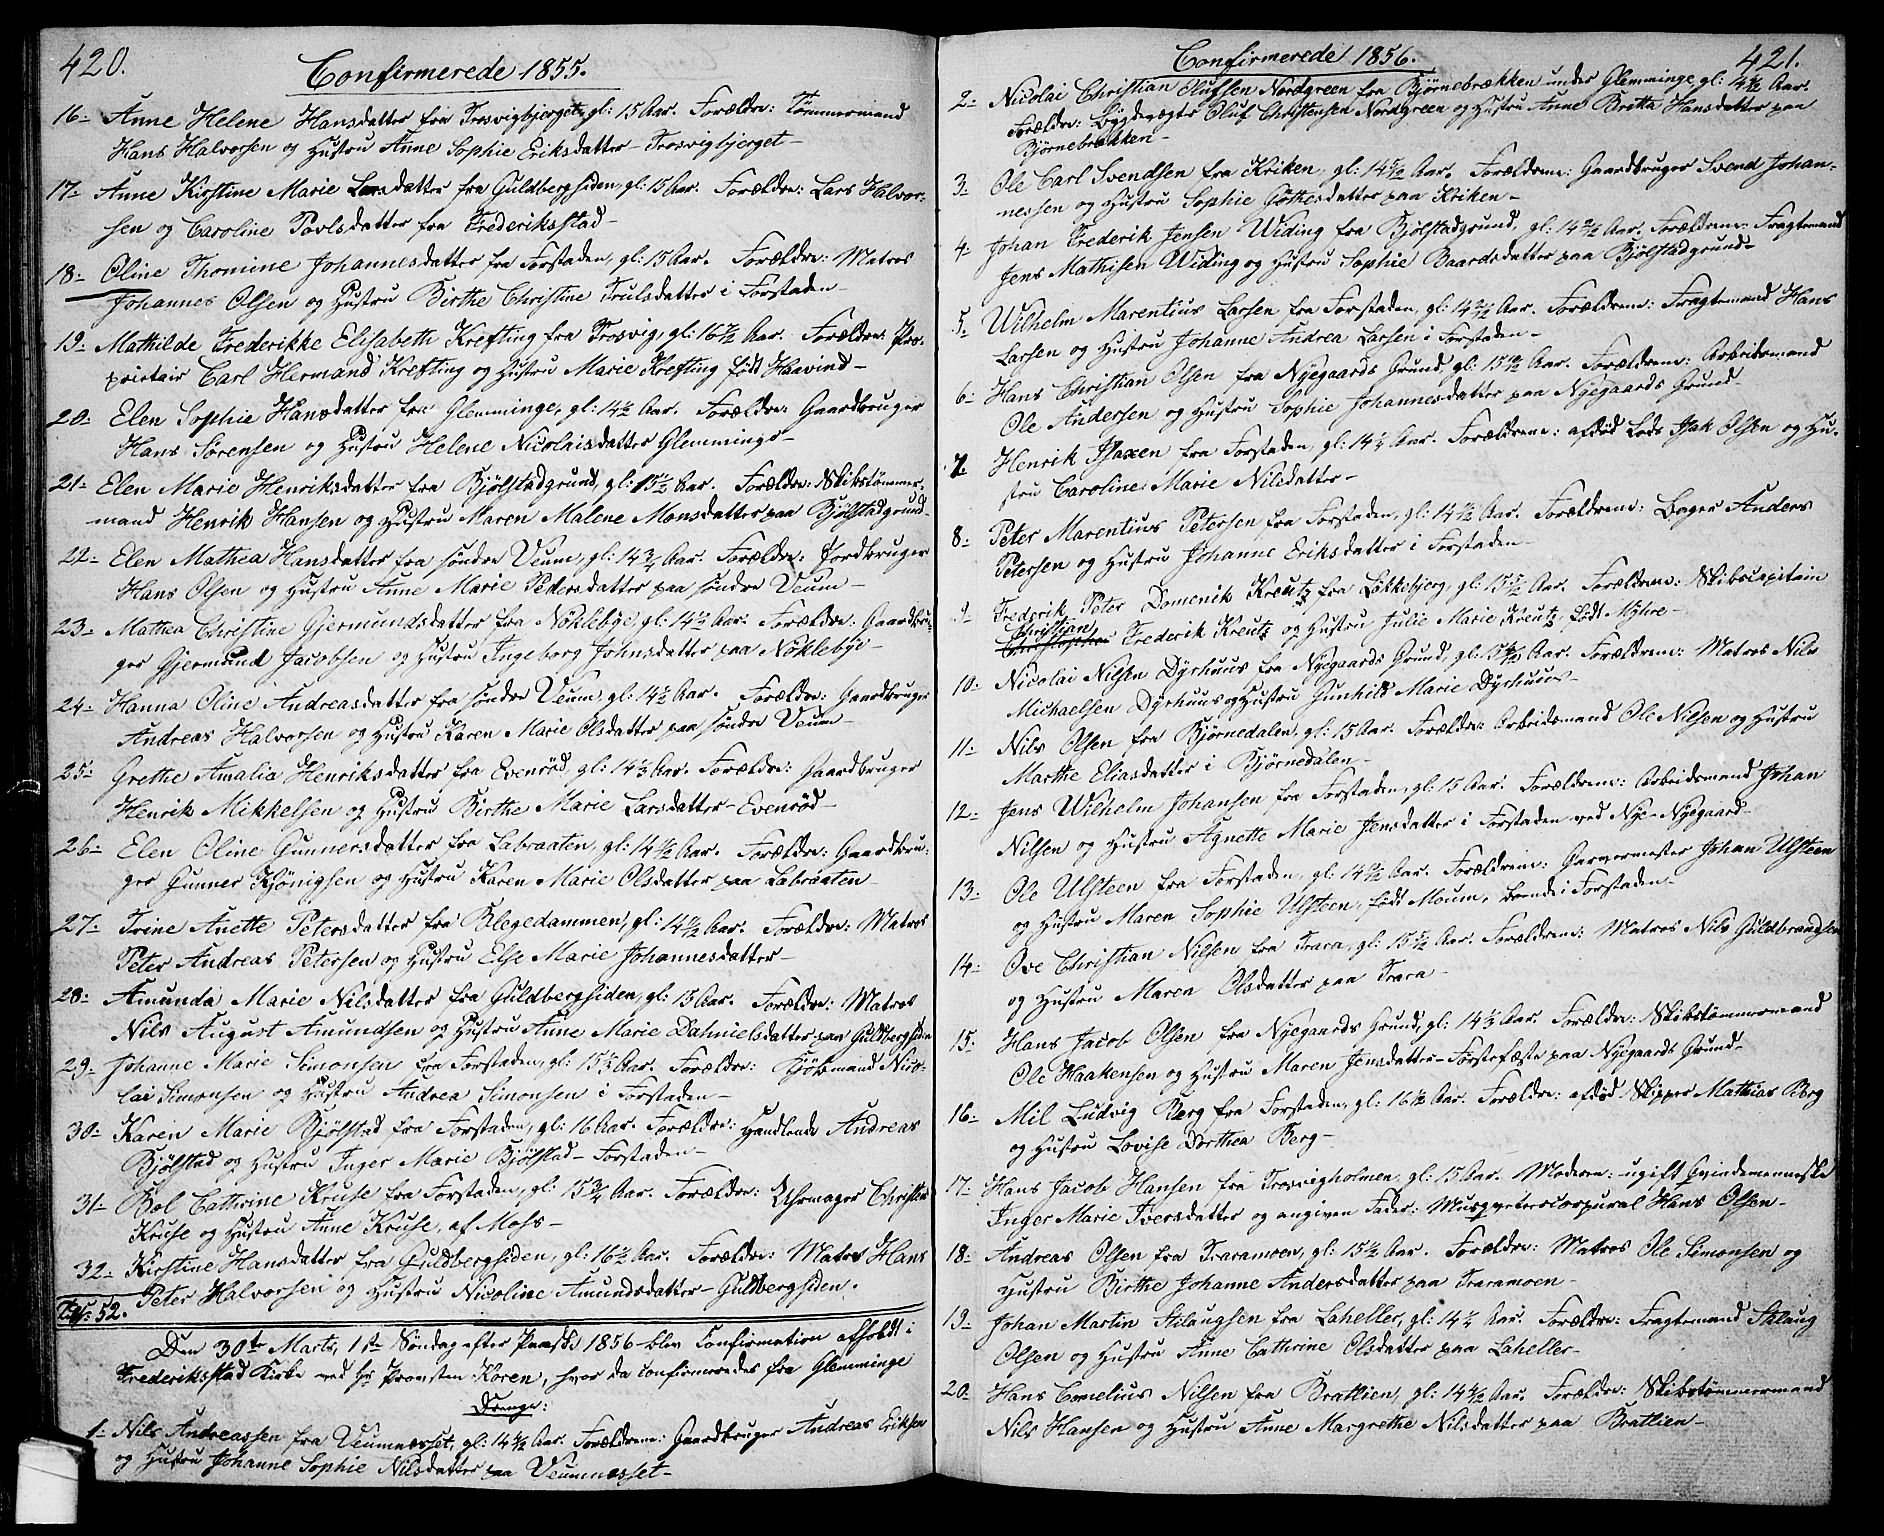 420.
Confirmerede 1855.
16- Anne Helene Hansdatter fra Trosvigbjerget, gl: 15 Aar. Forældre: Tømmermand
Hans Halvorsen og Hustru Anne Sophie Eriksdatter - Trosvigbjerget -
17- Anne Kirstine Marie Larsdatter fra Guldbergsiden, gl: 15 Aar. Forældre: Lars Halvor-
sen og Caroline Povlsdatter fra Frederiksstad -
18- Oline Thomine Johannesdatter fra Forstaden, gl: 15 Aar. Forældre: Matros
Johannes Olsen og Hustru Birthe Christine Trulsdatter i Forstaden -
19- Mathilde Frederikke Elisabeth Krefting fra Trosvig, gl: 16 Aar. Forældre: Pro-
prietair Carl Hermand Krefting og Hustru Marie Krefting født Haavind -
20- Elen Sophie Hansdatter fra Glemminge, gl: 14½ Aar. Forældre: Gaardbruger
Hans Sörensen og Hustru Helene Nicolaisdatter Glemminge -
21- Elen Marie Henriksdatter fra Bjölstadgrund, gl: 15½ Aar. Forældre: Skibstømmer-
mand Henrik Hansen og Hustru Maren Malene Monsdatter paa Bjölstadgrund -
22- Elen Mathea Hansdatter fra søndre Veum, gl: 14¾ Aar. Forældre: Jordbruger
Hans Olsen og Hustru Anne Marie Pedersdatter paa søndre Veum -
23- Mathea Christine Gjermundsdatter fra Nöklebye, gl: 14½ Aar. Forældre: Gaardbru-
ger Gjermund Jacobsen og Hustru Ingeborg Johnsdatter paa Nöklebye -
24- Hanna Oline Andreasdatter fra søndre Veum, gl: 14½ Aar. Forældre: Gaardbruger
Andreas Halvorsen og Hustru Karen Marie Olsdatter paa søndre Veum -
25- Grethe Amalia Henriksdatter fra Evenröd, gl: 14 Aar. Forældre: Gaardbruger
Henrik Mikkelsen og Hustru Birthe Marie Larsdatter - Evenröd -
26- Elen Oline Gunnersdatter fra Labraaten, gl: 14 Aar. Forældre: Gaardbru-
ger Gunner Kjönigsen og Hustru Karen Marie Olsdatter paa Labraaten -
27- Trine Anette Petersdatter fra Blegedammen, gl: 14 Aar. Forældre: Matros
Peter Andreas Petersen og Hustru Else Marie Johannesdatter -
28- Amunda Marie Nilsdatter fra Guldbergsiden, gl: 15 Aar. Forældre: Matros
Nils August Amundsen og Hustru Anne Marie Dahnielsdatter paa Guldbergsiden
29- Johanne Marie Simonsen fra Forstaden, gl: 15 Aar. Forældre: Kjöbmand Nico-
lai Simonsen og Hustru Andrea Simonsen i Forstaden -
30- Karen Marie Bjölstad fra Forstaden, gl: 16 Aar. Forældre: Handlende Andreas
Bjölstad og Hustru Inger Marie Bjölstad - Forstaden -
31- Bol Cathrine Kruse fra Forstaden, gl: 15 Aar. Forældre: Uhrmager Christian
Kruse og Hustru Anne Kruse, af Moss -
32- Kirstine Hansdatter fra Guldbergsiden, gl: 16½ Aar. Forældre: Matros Hans
Peter Halvorsen og Hustru Nicoline Amundsdatter - Guldbergsiden.
52.
Den 30te Marts, 1ste Søndag efter Paaske 1856 blev Confirmation afholdt i
Frederiksstad Kirke ved Hr Provsten Koren, hvor da confirmeredes fra Glemminge
Drenge:
1- Nils Andreassen fra Veumnesset, gl: 14 Aar. Forældrene: Gaardbruger Andreas Eriksen
og Hustru Johanne Sophie Nilsdatter paa Veumnesset -
421.
Confirmerede 1856.
2- Nicolai Christian Olufsen Nordgreen fra Bjørnebrækken under Glemminge, gl: 14 Aar.
Forældre: Bygdevægter Oluf Christensen Nordgreen og Hustru Anne Britta Hansdatter paa
Bjørnebrækken -
3- Ole Carl Svendsen fra Kriken, gl: 14 Aar. Forældrene: Gaardbruger Svend Johan-
nessen og Hustru Sophie Göthesdatter paa Kriken -
4- Johan Frederik Jensen Widing fra Bjölstadgrund, gl: 14 Aar. Forældrene: Fragtemand
Jens Mathisen Widing og Hustru Sophie Baardsdatter paa Bjölstadgrund -
5- Wilhelm Marentius Larsen fra Forstaden, gl: 14 Aar. Forældrene: Fragtemand Hans
Larsen og Hustru Johanne Andrea Larsen i Forstaden -
6- Hans Christian Olsen fra Nyegaards Grund, gl: 15 Aar. Forældrene: Arbeidsmand
Ole Andersen og Hustru Sophie Johannesdatter paa Nyegaards Grund -
7. Henrik Isaxen fra Forstaden, gl: 14 Aar. Forældrene: afdød Lods Isak Olsen og Hu-
stru Caroline Marie Nilsdatter -
8- Peter Marentius Petersen fra Forstaden, gl: 14 Aar. Forældrene: Bager Anders
Petersen og Hustru Johanne Eriksdatter i Forstaden -
9- Frederik Peter Domenik Kreutz fra Løkkebjerg, gl: 15 Aar. Forældrene: Skibscapitain
Christian Frederik Kreutz og Hustru Julie Marie Kreutz, født Myhre -
10- Nicolai Nilsen Dyrhuus fra Nyegaards Grund, gl: 15 Aar. Forældrene: Matros Nils
Michaelsen Dyrhuus og Hustru Gunhild Marie Dyrhuus -
11- Nils Olsen fra Bjørnedalen, gl: 15 Aar. Forældre: Arbeidsmand Ole Nilsen og Hustru
Marthe Eliasdatter i Bjørnedalen -
12- Jens Wilhelm Johansen fra Forstaden, gl: 15 Aar. Forældrene: Arbeidsmand Johan
Nilsen og Hustru Agnette Marie Jensdatter i Forstaden ved Nye-Nyegaard -
13- Ole Ulsteen fra Forstaden, gl: 14 Aar. Forældrene: Garvermester Johan Ulsteen
og Hustru Maren Sophie Ulsteen, født Moum, boende i Forstaden -
14- Ove Christian Nilsen fra Trara, gl: 15 Aar. Forældrene: Matros Nils Guldbrandsen
og Hustru Maren Olsdatter paa Trara -
15- Hans Jacob Olsen fra Nyegaards Grund, gl: 14 Aar. Forældre: Skibstømmermand
Ole Haakensen og Hustru Maren Jensdatter - Förstefæste paa Nyegaards Grund -
16- Mil Ludvig Berg fra Forstaden, gl: 16½ Aar. Forældre: afdød Skipper Mathias Berg
og Hustru Lovise Dorthea Berg -
17- Hans Jacob Hansen fra Trosvigholmen, gl: 15 Aar. Moderen: ugift Qvindemenneske
Inger Marie Iversdatter og angiven Fader: Musqveteercorpural Hans Olsen -
18- Andreas Olsen fra Traramoen, gl: 15½ Aar. Forældre: Matros Ole Simonsen og
Hustru Birthe Johanne Andersdatter paa Traramoen -
19- Johan Martin Stilaugsen fra Laheller, gl: 14 Aar. Forældre: Fragtemand Stilaug
Olsen og Hustru Anne Cathrine Olsdatter paa Laheller -
20- Hans Cornelius Nilsen fra Bratlien, gl: 14 Aar. Forældre: Skibstømmermand
Nils Hansen og Hustru Anne Margrethe Nilsdatter paa Bratlien -